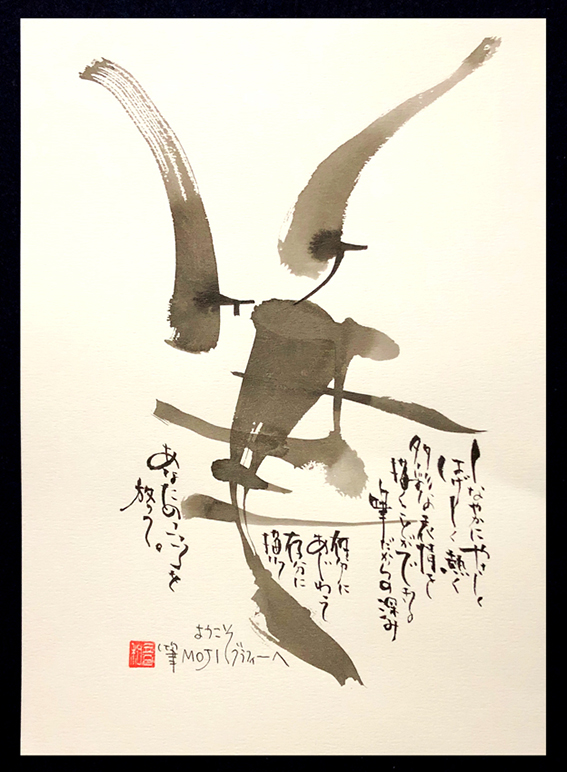 筆
しなやかにやさしく
はげしく熱く
多彩な表情を
描くことができる。
筆だからの深み
存分に
あじわって
存分に
描いて
あなたのこころを
放って。
ようこそ
筆MOJIグラフィーへ